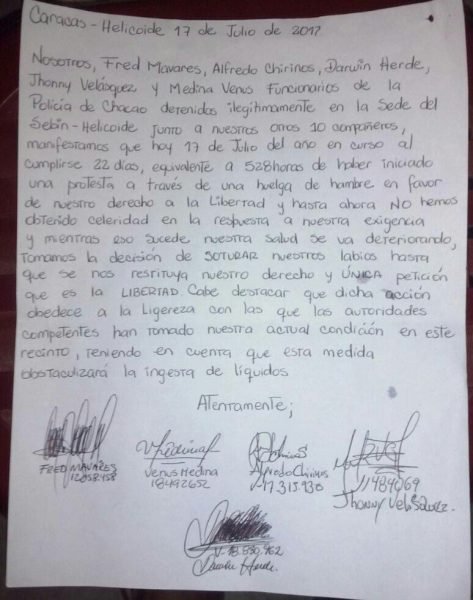 Caracas - Helicoide 17 de Julio de 2017
Nosotros, Fred Mavares, Alfredo Chirinos, Darwin Herde,
Jhonny Velásquez y Medina Venus Funcionarios de la
Policía de Chacao detenidos ilegítimamente en la Sede del
Sebin-Helicoide junto a nuestros otros 10 compañeros,
manifestamos que hoy 17 de Julio del año en curso al
cumplirse 22 días, equivalente a 528 horas de haber iniciado
una protesta a través de una huelga de hambre en favor
de nuestro derecho a la Libertad y hasta ahora NO hemos
obtenido celeridad en la respuesta a nuestra exigencia
y mientras eso sucede nuestra salud se va deteriorando,
Tomamos la decisión de SOTURAR nuestros labios hasta
que se nos restituya nuestro derecho y ÚNICA petición
que es la LIBERTAD. Cabe destacar que dicha acción
obedece a la Ligereza con las que las autoridades
competentes han tomado nuestra actual condición en este
recinto, teniendo en cuenta que esta medida
obstaculizará la ingesta de líquidos.
Atentamente;
FRED MAVARES
12.858.458
Venus Medina
18492652
Alfredo Chirinos
17.315.930
11484069
Jhonny Velásquez.